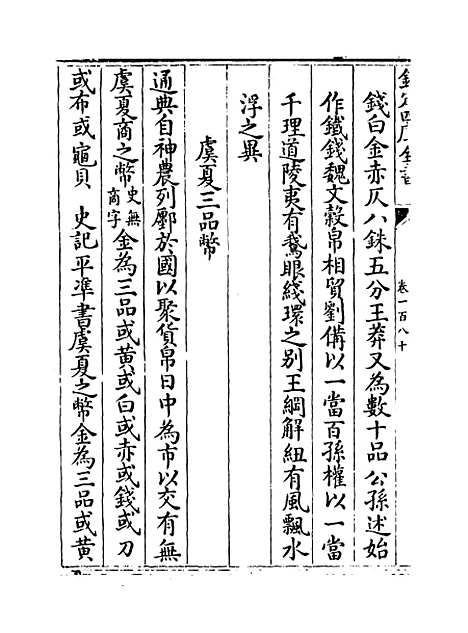 欽定四庫全書
卷一百八十
錢白金赤仄八銖五分王莽又為數十品公孫述始
作鐵錢魏文穀帛相貿劉備以一當百孫權以一當
千理道陵夷有鵞眼綫環之别王綱解紐有風飄水
浮之異
虞夏三品幣
通典自神農列廛於國以聚貨帛日中為市以交有無
虞夏商之幣史無商字金為三品或黄或白或赤或錢或刀
或布或龜貝 史記平凖書虞夏之幣金為三品或黄